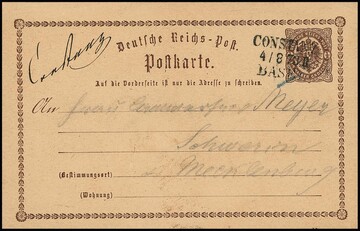 Constanz
Deutsche Reichs-Post.
Postkarte.
Auf die Vorderseite ist nur die Adresse zu schreiben.
An Frau Meyer
Schwerin
(Bestimmungsort)
Mecklenburg
(Wohnung)